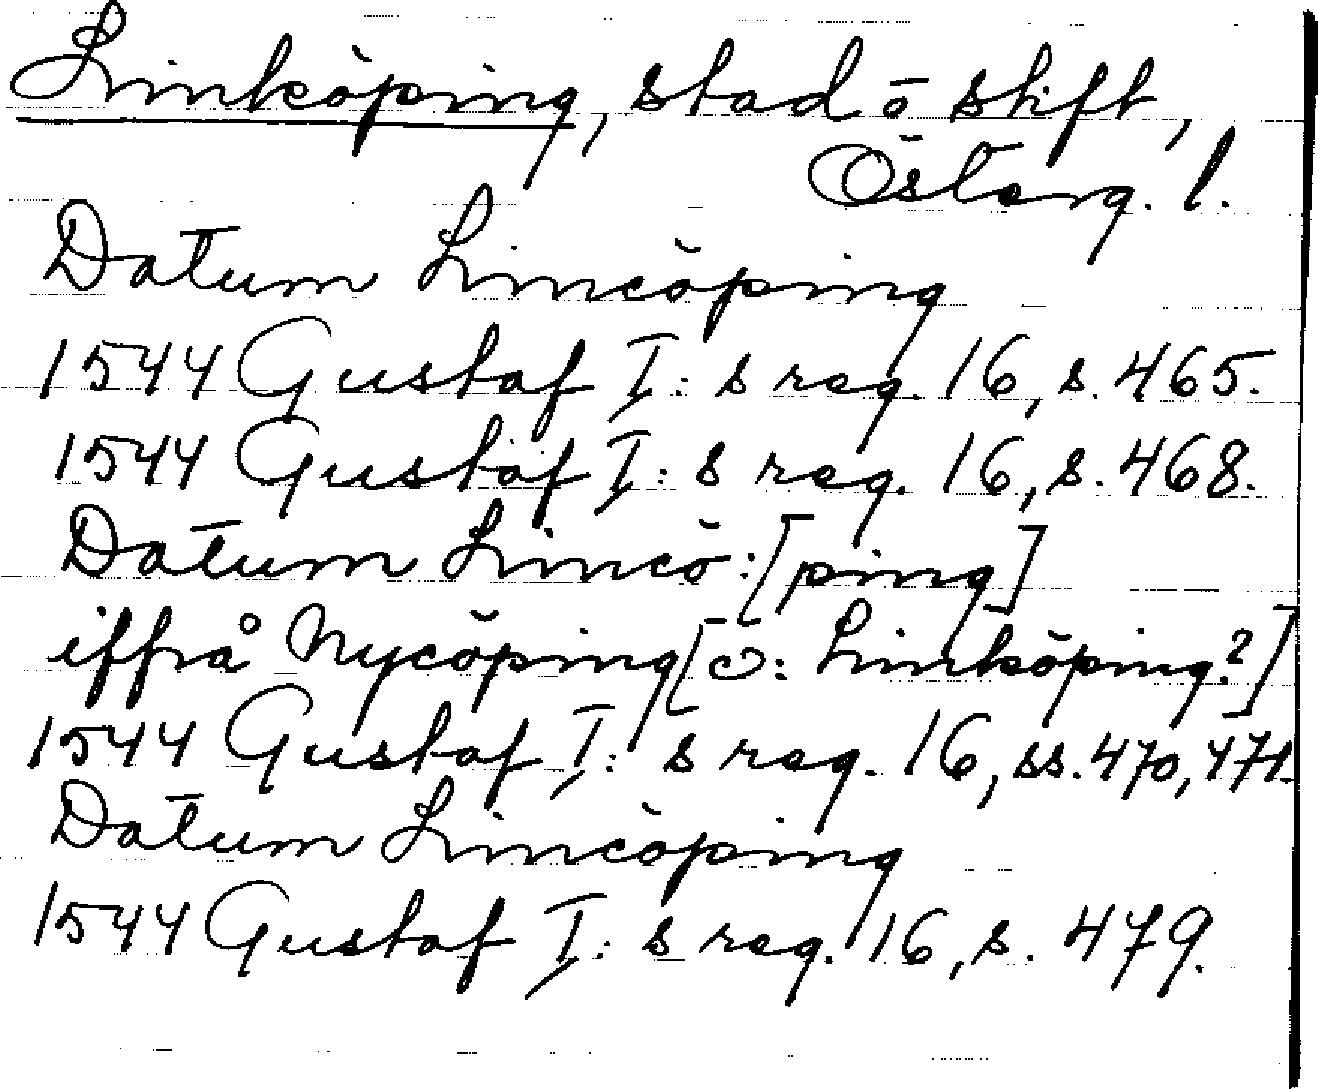 Linköping, stad o stift,
Österg. l.
Datum Lincöping
1544 Gustaf I: s reg. 16, s. 465.
1544 Gustaf I: s reg. 16, s. 468.
Datum Lincö: [ping]
iffrå Nycöping [ɔ: Linköping?]
1544 Gustaf I: s reg. 16, ss. 470, 471.
Datum Lincöping
1544 Gustaf I: s reg. 16, s. 479.